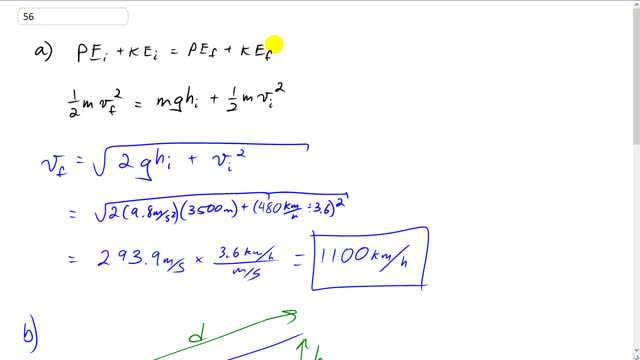 56
a) PEi + KEi = PEf + KEf
½ m vf² = mghi + ½ m vi²
vf = √(2ghi + vi²)
= √(2(9.8m/s²)(3500m) + (480 km/h ÷ 3.6)²)
= 293.9 m/s × 3.6 km/h / m/s = 1100 km/h
b) d
h